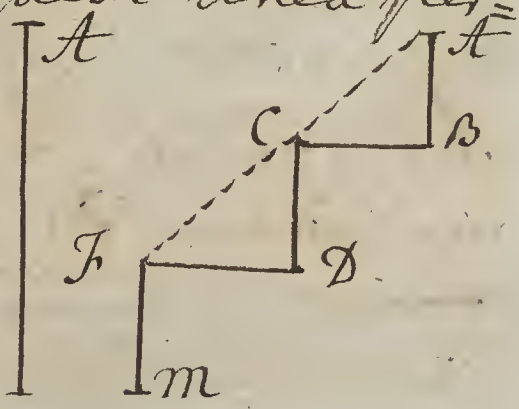 A A
C B
F D
m